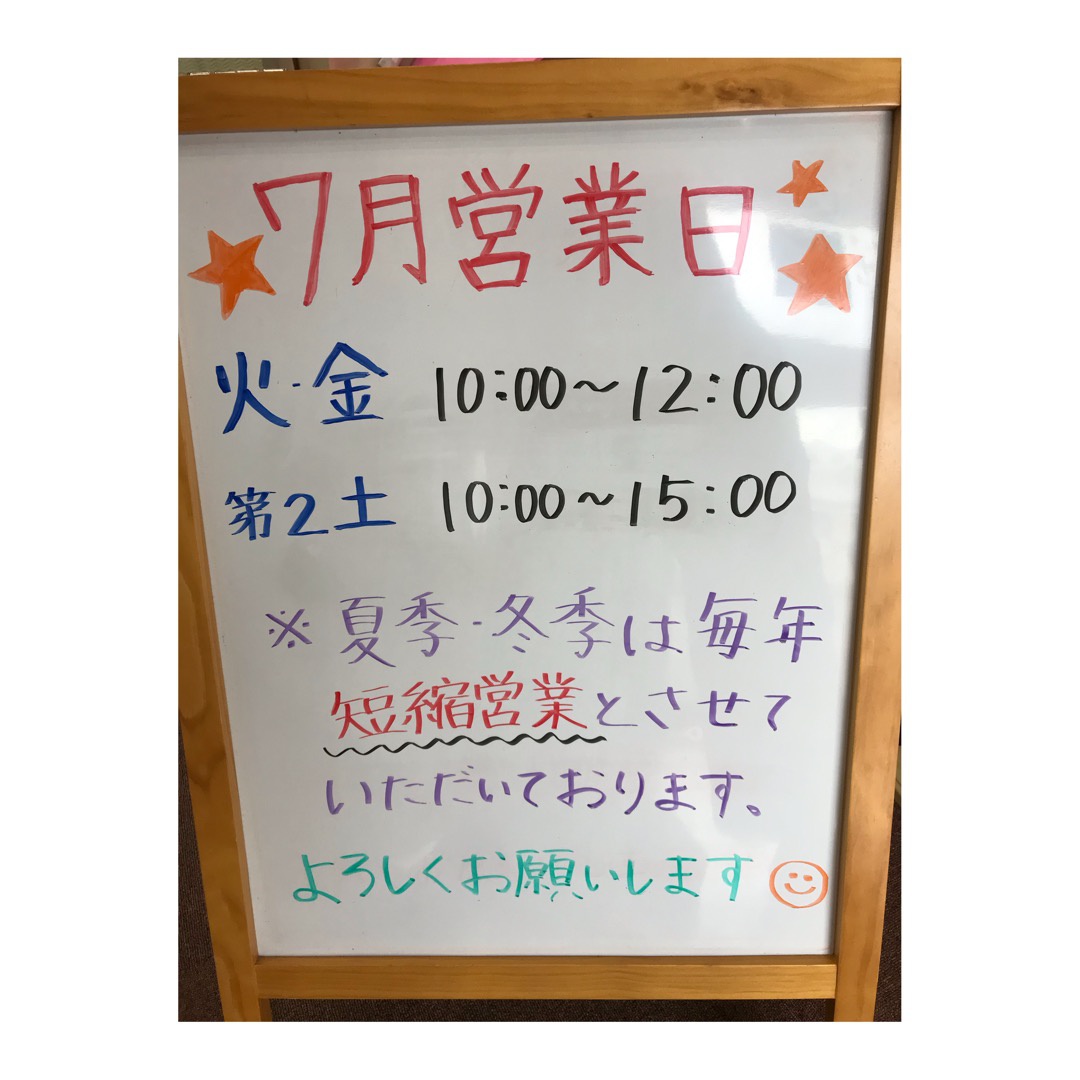 7月営業日
火・金 10:00〜12:00
第2土 10:00〜15:00
※夏季・冬季は毎年
短縮営業とさせて
いただいております。
よろしくお願いします